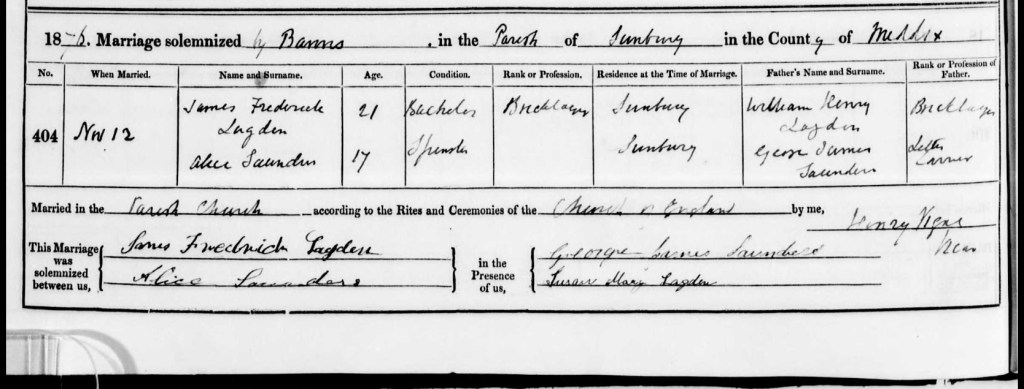 187 . Marriage solemnized by Banns . in the Parish of Sunbury in the County of Middsx
No. When Married. Name and Surname. Age. Condition. Rank or Profession. Residence at the Time of Marriage. Father's Name and Surname. Rank or Profession of Father.
404 Nov 12 James Frederick Lagden 21 Bachelor Bricklayer Sunbury William Henry Lagden Bricklayer
Alice Saunders 17 Spinster Sunbury George James Saunders Letter Carrier
Married in the Parish Church according to the Rites and Ceremonies of the Church of England by me, Henry Vigne
Vicar
This Marriage was solemnized between us, James Fredrick Lagden
Alice Saunders
in the Presence of us, George James Saunders
Susan Mary Lagden